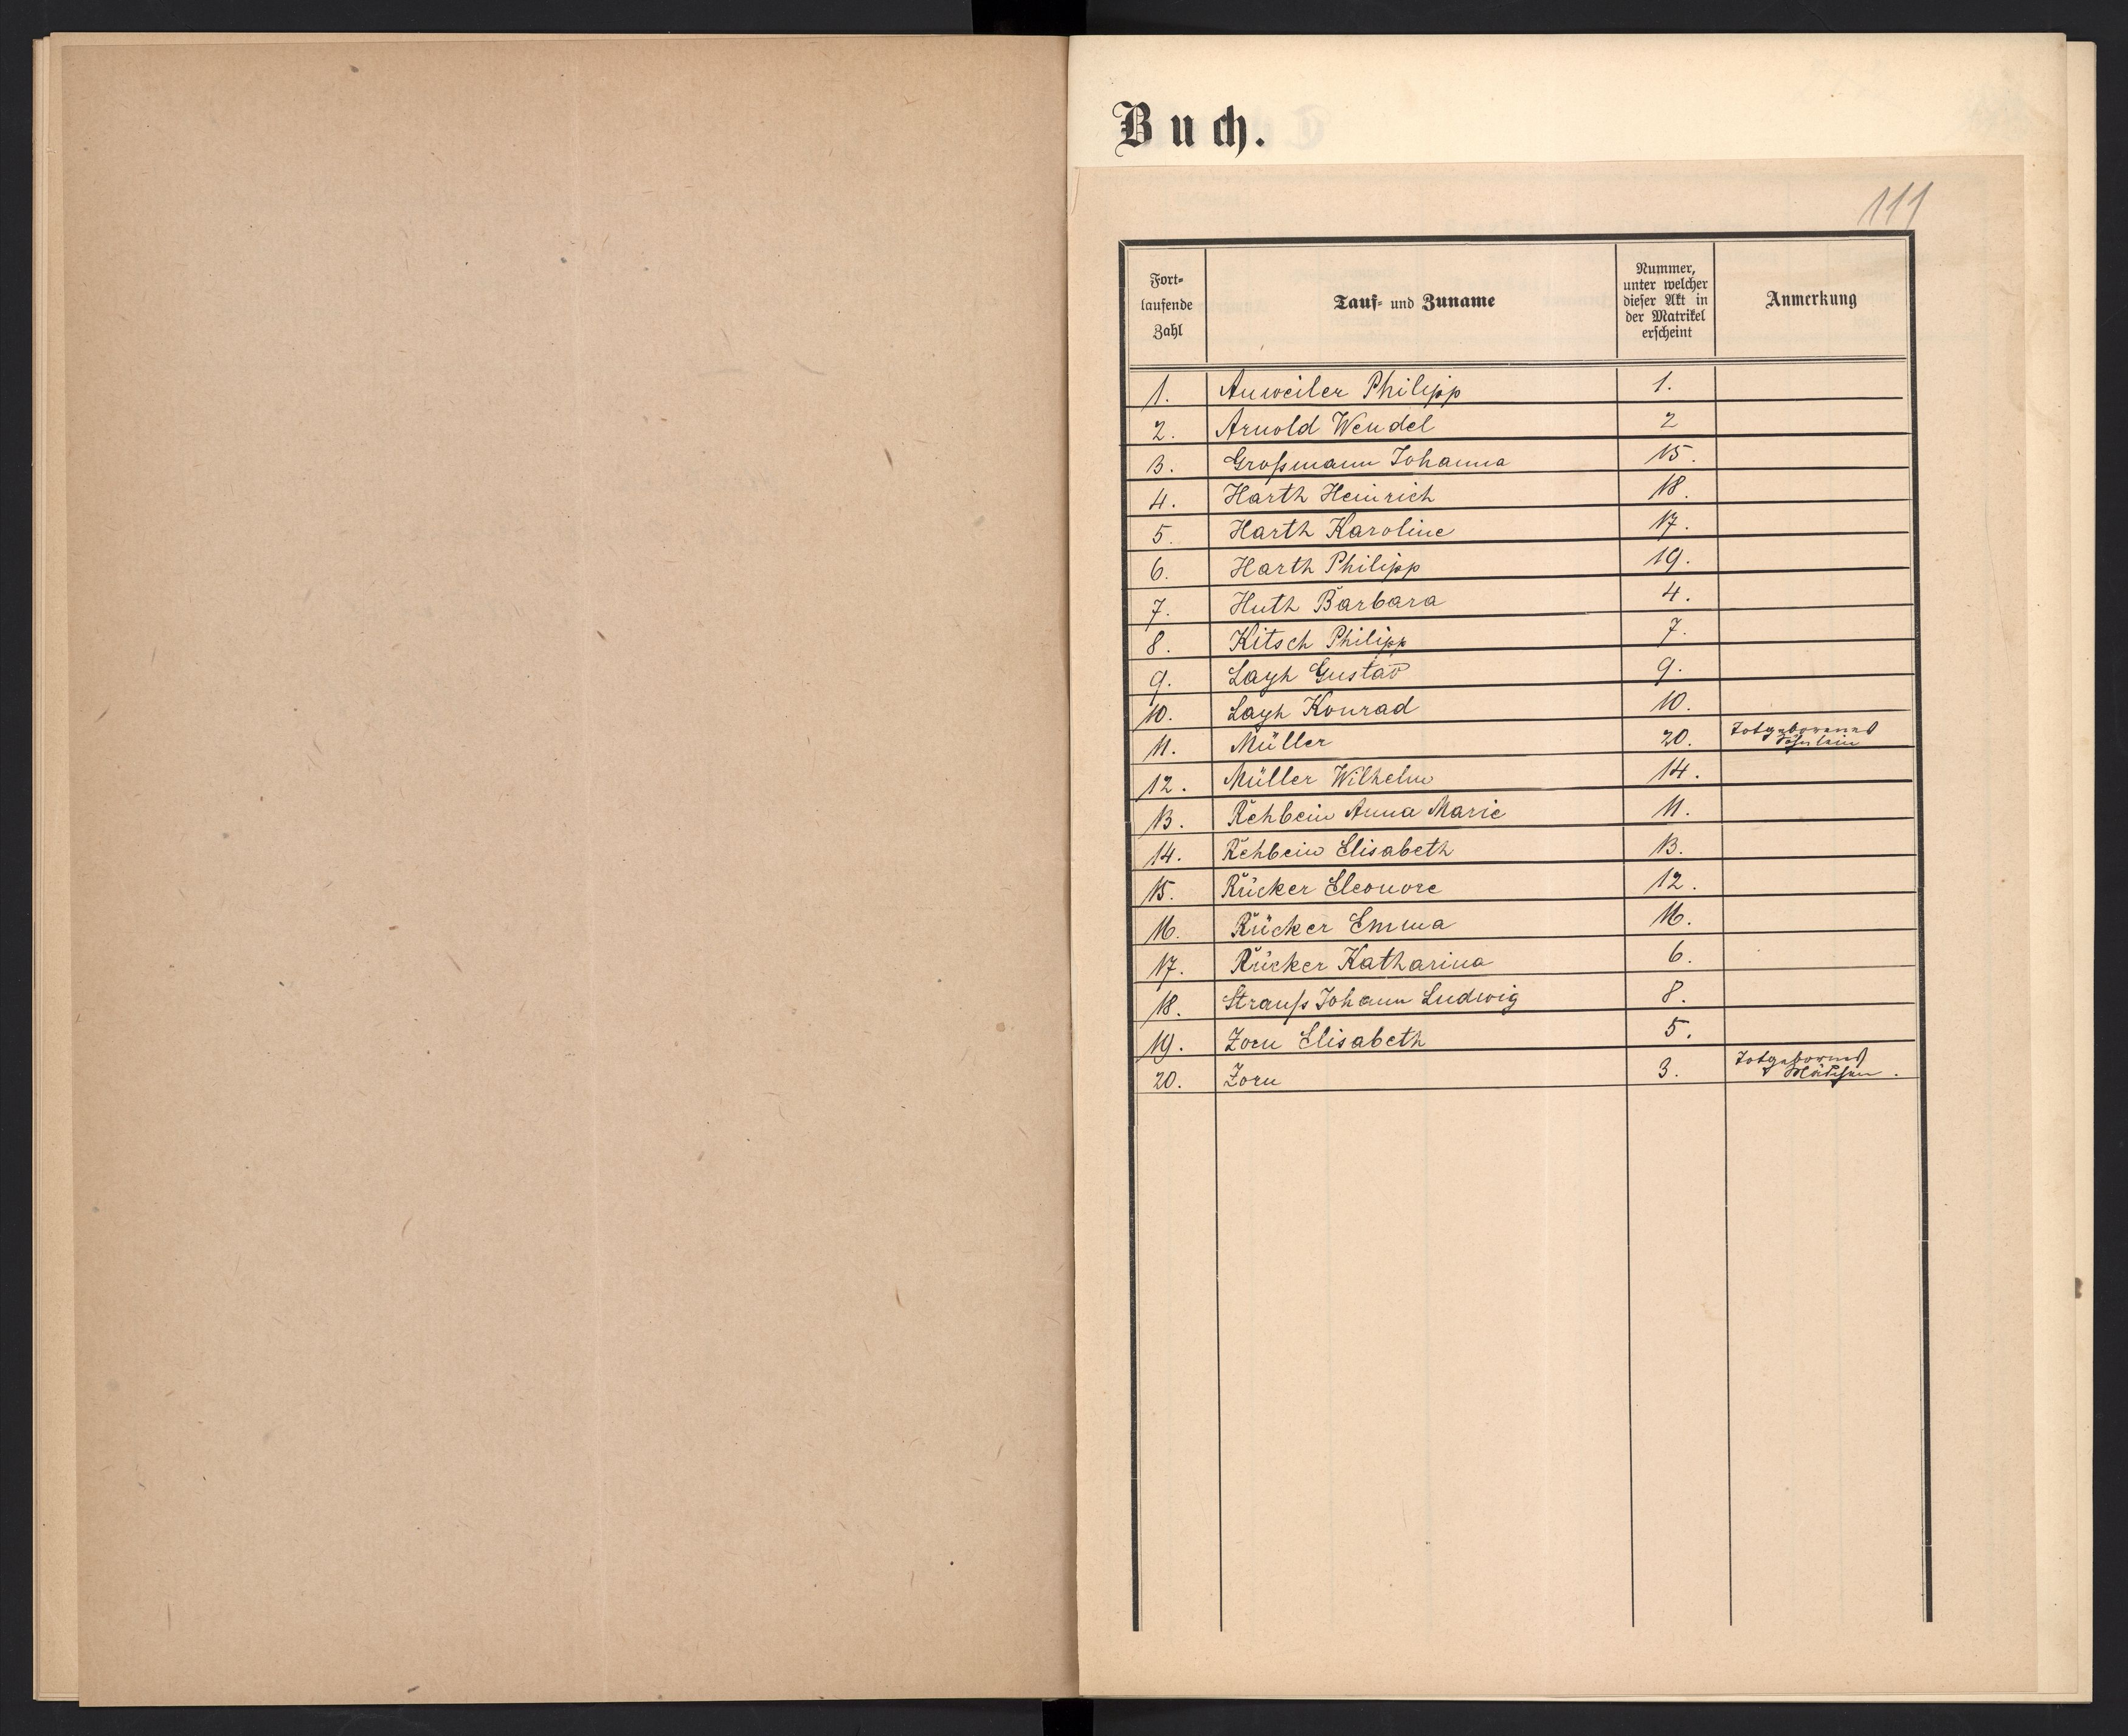 Buch.
111
Fort-
laufende
Zahl
Tauf- und Zuname
Nummer,
unter welcher
dieser Akt in
der Matrikel
erscheint
Anmerkung
1. Auweiler Philipp 1.
2. Arnold Wendel 2
3. Großmann Johanna 15.
4. Harth Heinrich 18.
5. Harth Karoline 17.
6. Harth Philipp 19.
7. Huth Barbara 4.
8. Kitsch Philipp 7.
9. Layh Gustav 9.
10. Layh Konrad 10.
11. Müller 20. Totgeborenes
Söhnlein
12. Müller Wilhelm 14.
13. Rehbein Anna Marie 11.
14. Rehbein Elisabeth 13.
15. Rücker Eleonore 12.
16. Rücker Emma 16.
17. Rücker Katharina 6.
18. Strauß Johann Ludwig 8.
19. Zorn Elisabeth 5.
20. Zorn 3. Totgebornes
Mädchen.